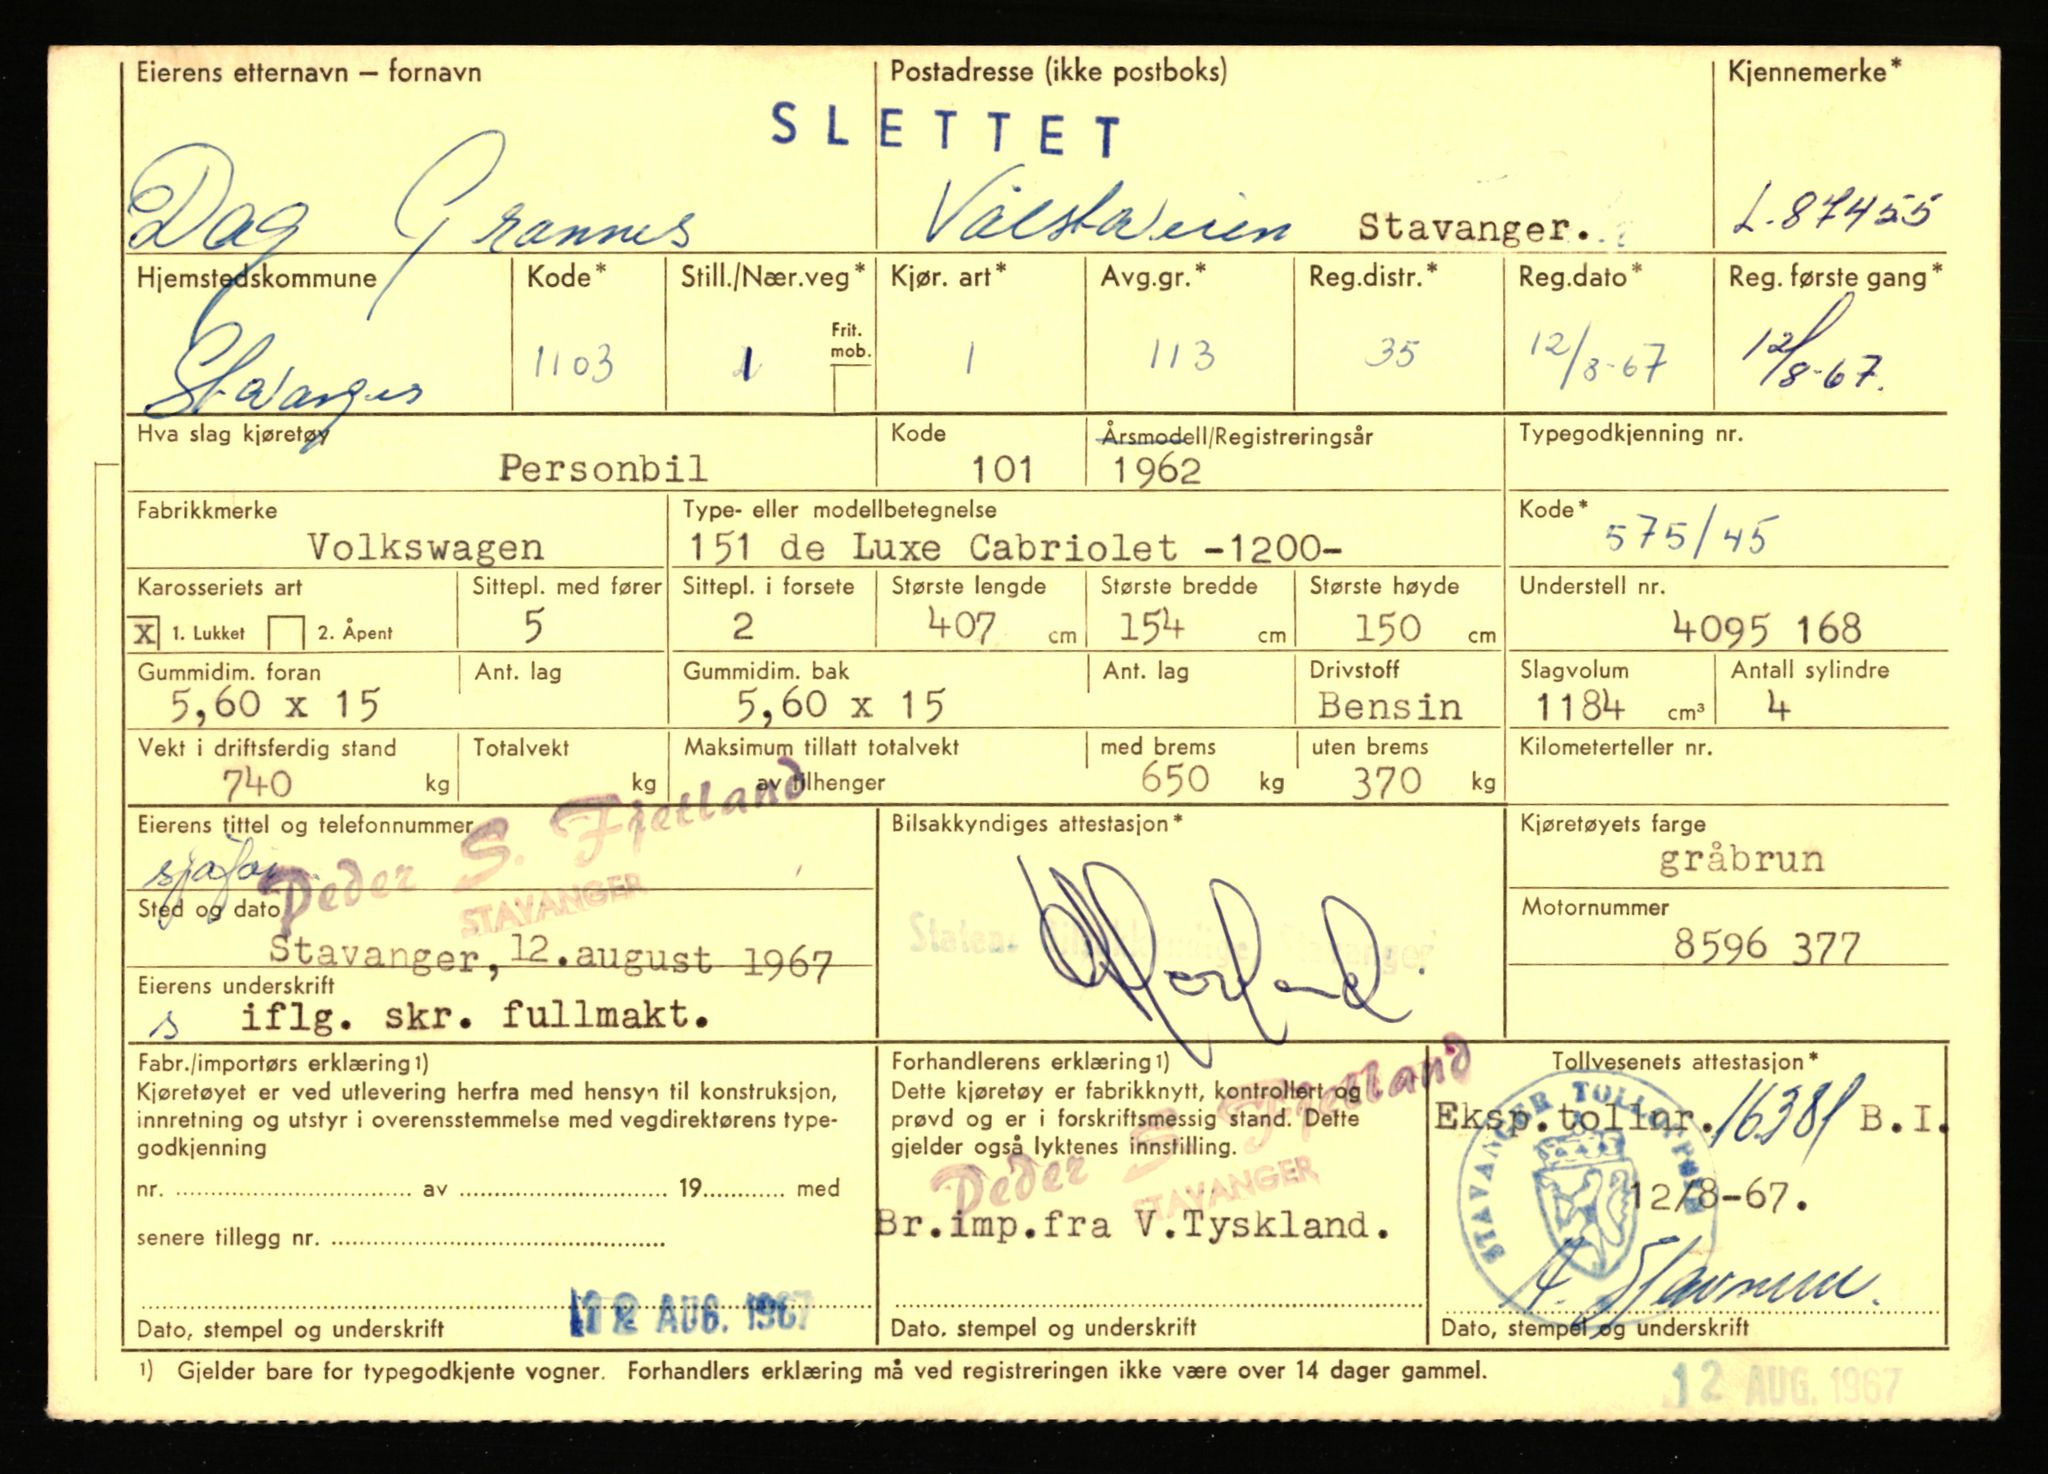 Eierens etternavn – fornavn Postadresse (ikke postboks) Kjennemerke*
SLETTET
Dag Grannes Stavanger. L-87455
Hjemstedskommune Kode* Still./Nær.veg* Kjør. art* Avg.gr.* Reg.distr.* Reg.dato* Reg. første gang*
Frit. mob.
Stavanger 1103 1 1 113 35 12/8-67 12/8-67.
Hva slag kjøretøy Kode Årsmodell/Registreringsår Typegodkjenning nr.
Personbil 101 1962
Fabrikkmerke Type- eller modellbetegnelse Kode*
Volkswagen 151 de Luxe Cabriolet -1200- 575/45
Karosseriets art Sittepl. med fører Sittepl. i forsete Største lengde Største bredde Største høyde Understell nr.
X 1. Lukket 2. Åpent 5 2 407 cm 154 cm 150 cm 4095 168
Gummidim. foran Ant. lag Gummidim. bak Ant. lag Drivstoff Slagvolum Antall sylindre
5,60 x 15 5,60 x 15 Bensin 1184 cm³ 4
Vekt i driftsferdig stand Totalvekt Maksimum tillatt totalvekt med brems uten brems Kilometerteller nr.
740 kg kg av tilhenger 650 kg 370 kg
Eierens tittel og telefonnummer Bilsakkyndiges attestasjon* Kjøretøyets farge
gråbrun
Peder S. Fjetland
STAVANGER
Sted og dato Motornummer
Stavanger, 12.august 1967 8596 377
Eierens underskrift
s iflg. skr. fullmakt.
Fabr./importørs erklæring 1) Forhandlerens erklæring 1) Tollvesenets attestasjon*
Kjøretøyet er ved utlevering herfra med hensyn til konstruksjon, Dette kjøretøy er fabrikknytt, kontrollert og
innretning og utstyr i overensstemmelse med vegdirektørens type- prøvd og er i forskriftsmessig stand. Dette
godkjenning gjelder også lyktenes innstilling.
Eksp.tollnr. 16381 B.I.
Peder S. Fjetland
STAVANGER
STAVANGER TOLL
nr. av 19 med 12/8-67.
Br.imp.fra V.Tyskland.
senere tillegg nr.
12 AUG. 1967
Dato, stempel og underskrift Dato. stempel og underskrift Dato, stempel og underskrift
1) Gjelder bare for typegodkjente vogner. Forhandlers erklæring må ved registreringen ikke være over 14 dager gammel.
12 AUG. 1967